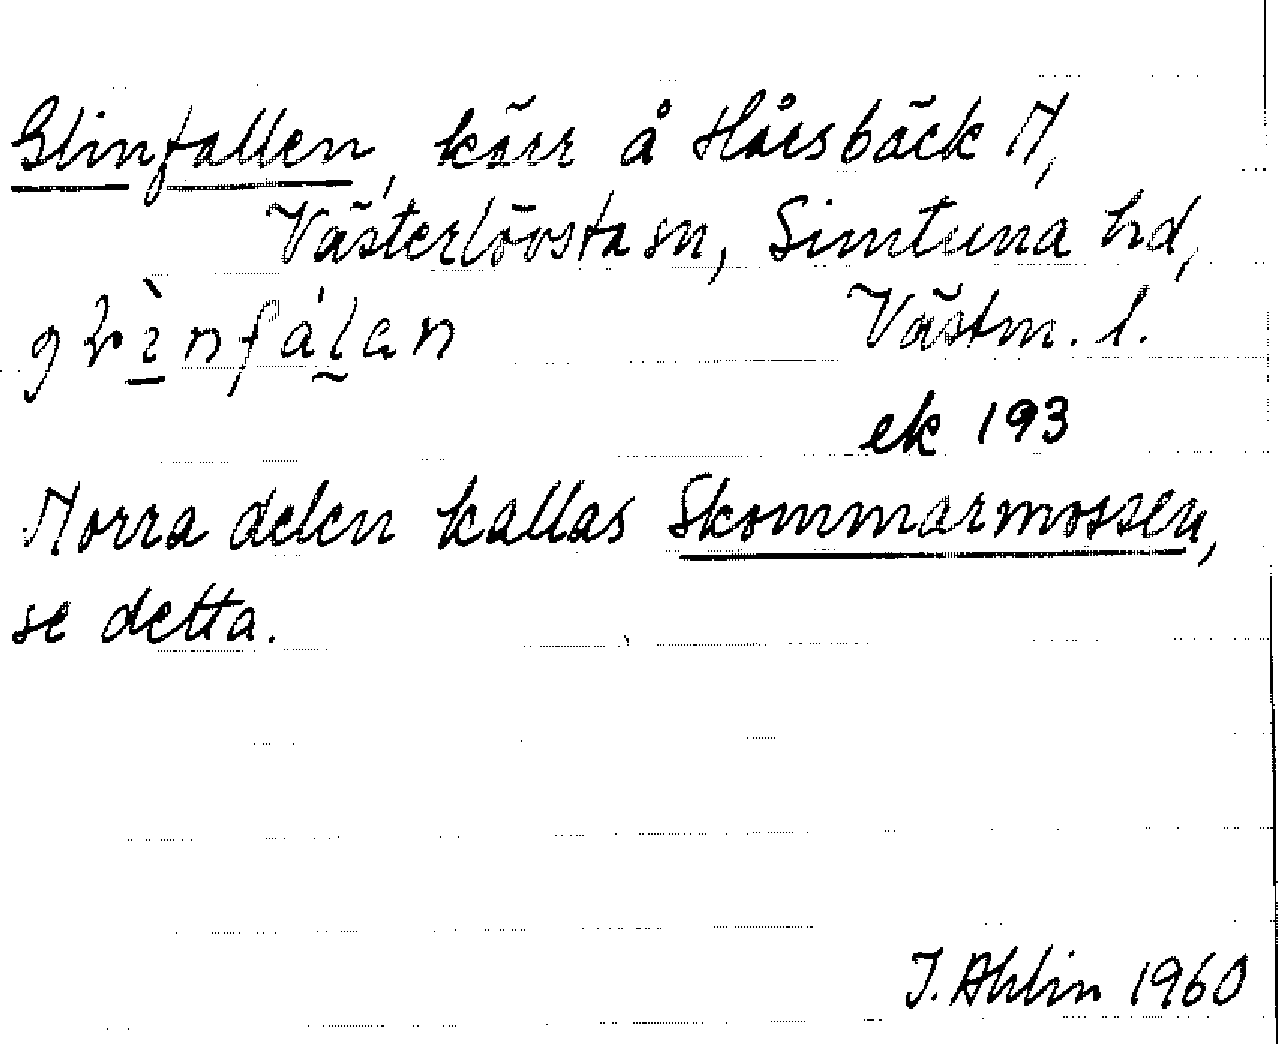 Glinfallen, kärr å Hårsbäck N,
Västerlövsta sn, Simtuna hd,
Västm. l.
ek 193
Norra delen kallas Skommarmossen,
se detta.
J. Ahlin 1960